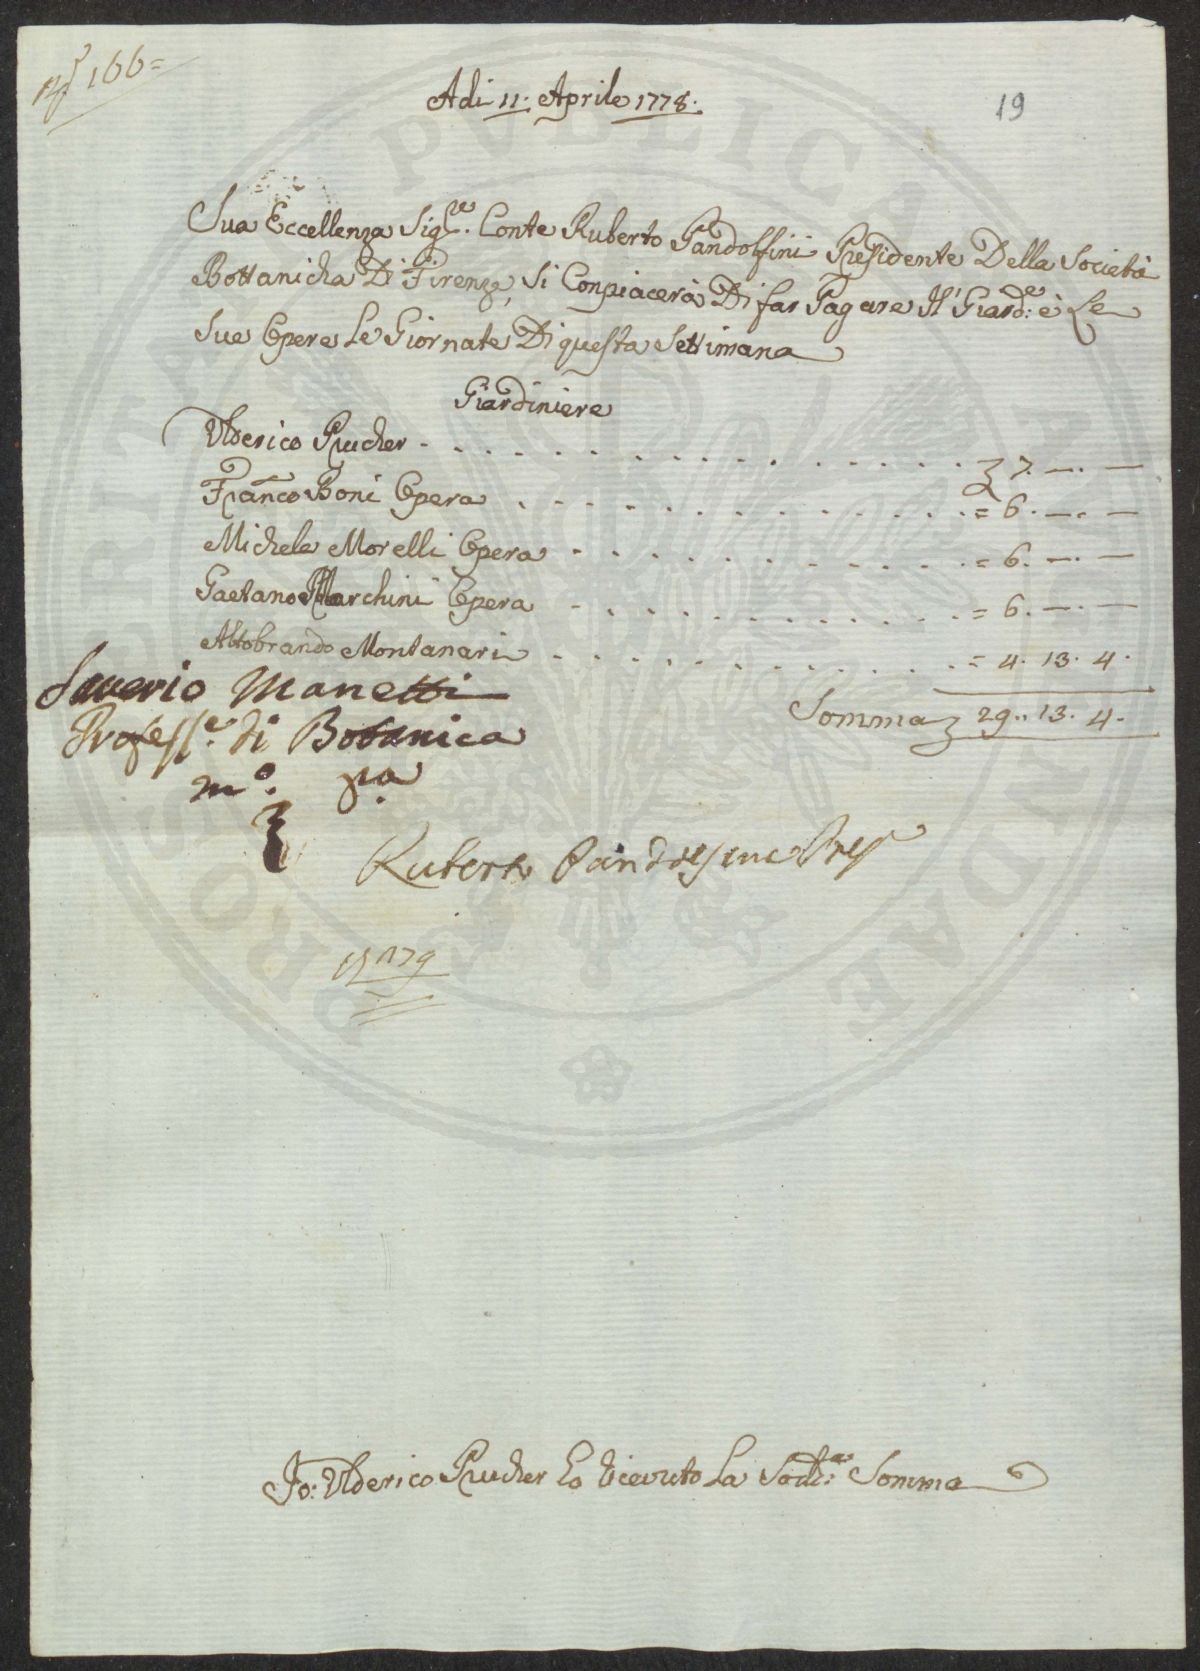 N° 166=
19
Adi 11. Aprile 1778.
Sua Eccellenza Sig.re Conte Ruberto Pandolfini Presidente Della Società
Bottanicha Di Firenze, Si Conpiacerà Di far Pagare Il Giard.re è Le
Sue Opere Le Giornate Di questa Settimana
Giardiniere
Ulderico Prucher - . . . . . . . . . . . . . £ 7. —. —
Franco Boni Opera . . . . . . . . . . . . = 6. —. —
Michele Morelli Opera . . . . . . . . . . = 6. —. —
Gaetano Marchini Opera . . . . . . . . . . = 6. —. —
Altobrando Montanari . . . . . . . . . . = 4. 13. 4.
Somma £ 29.. 13. 4.
Saverio Manetti
Profess.e di Botanica
m.o p.a
Ruberto Pandolfini Pres
179
Io: Ulderico Prucher ho Ricevuto La Sod.a Somma
PROSPERITATI PVBLICAE